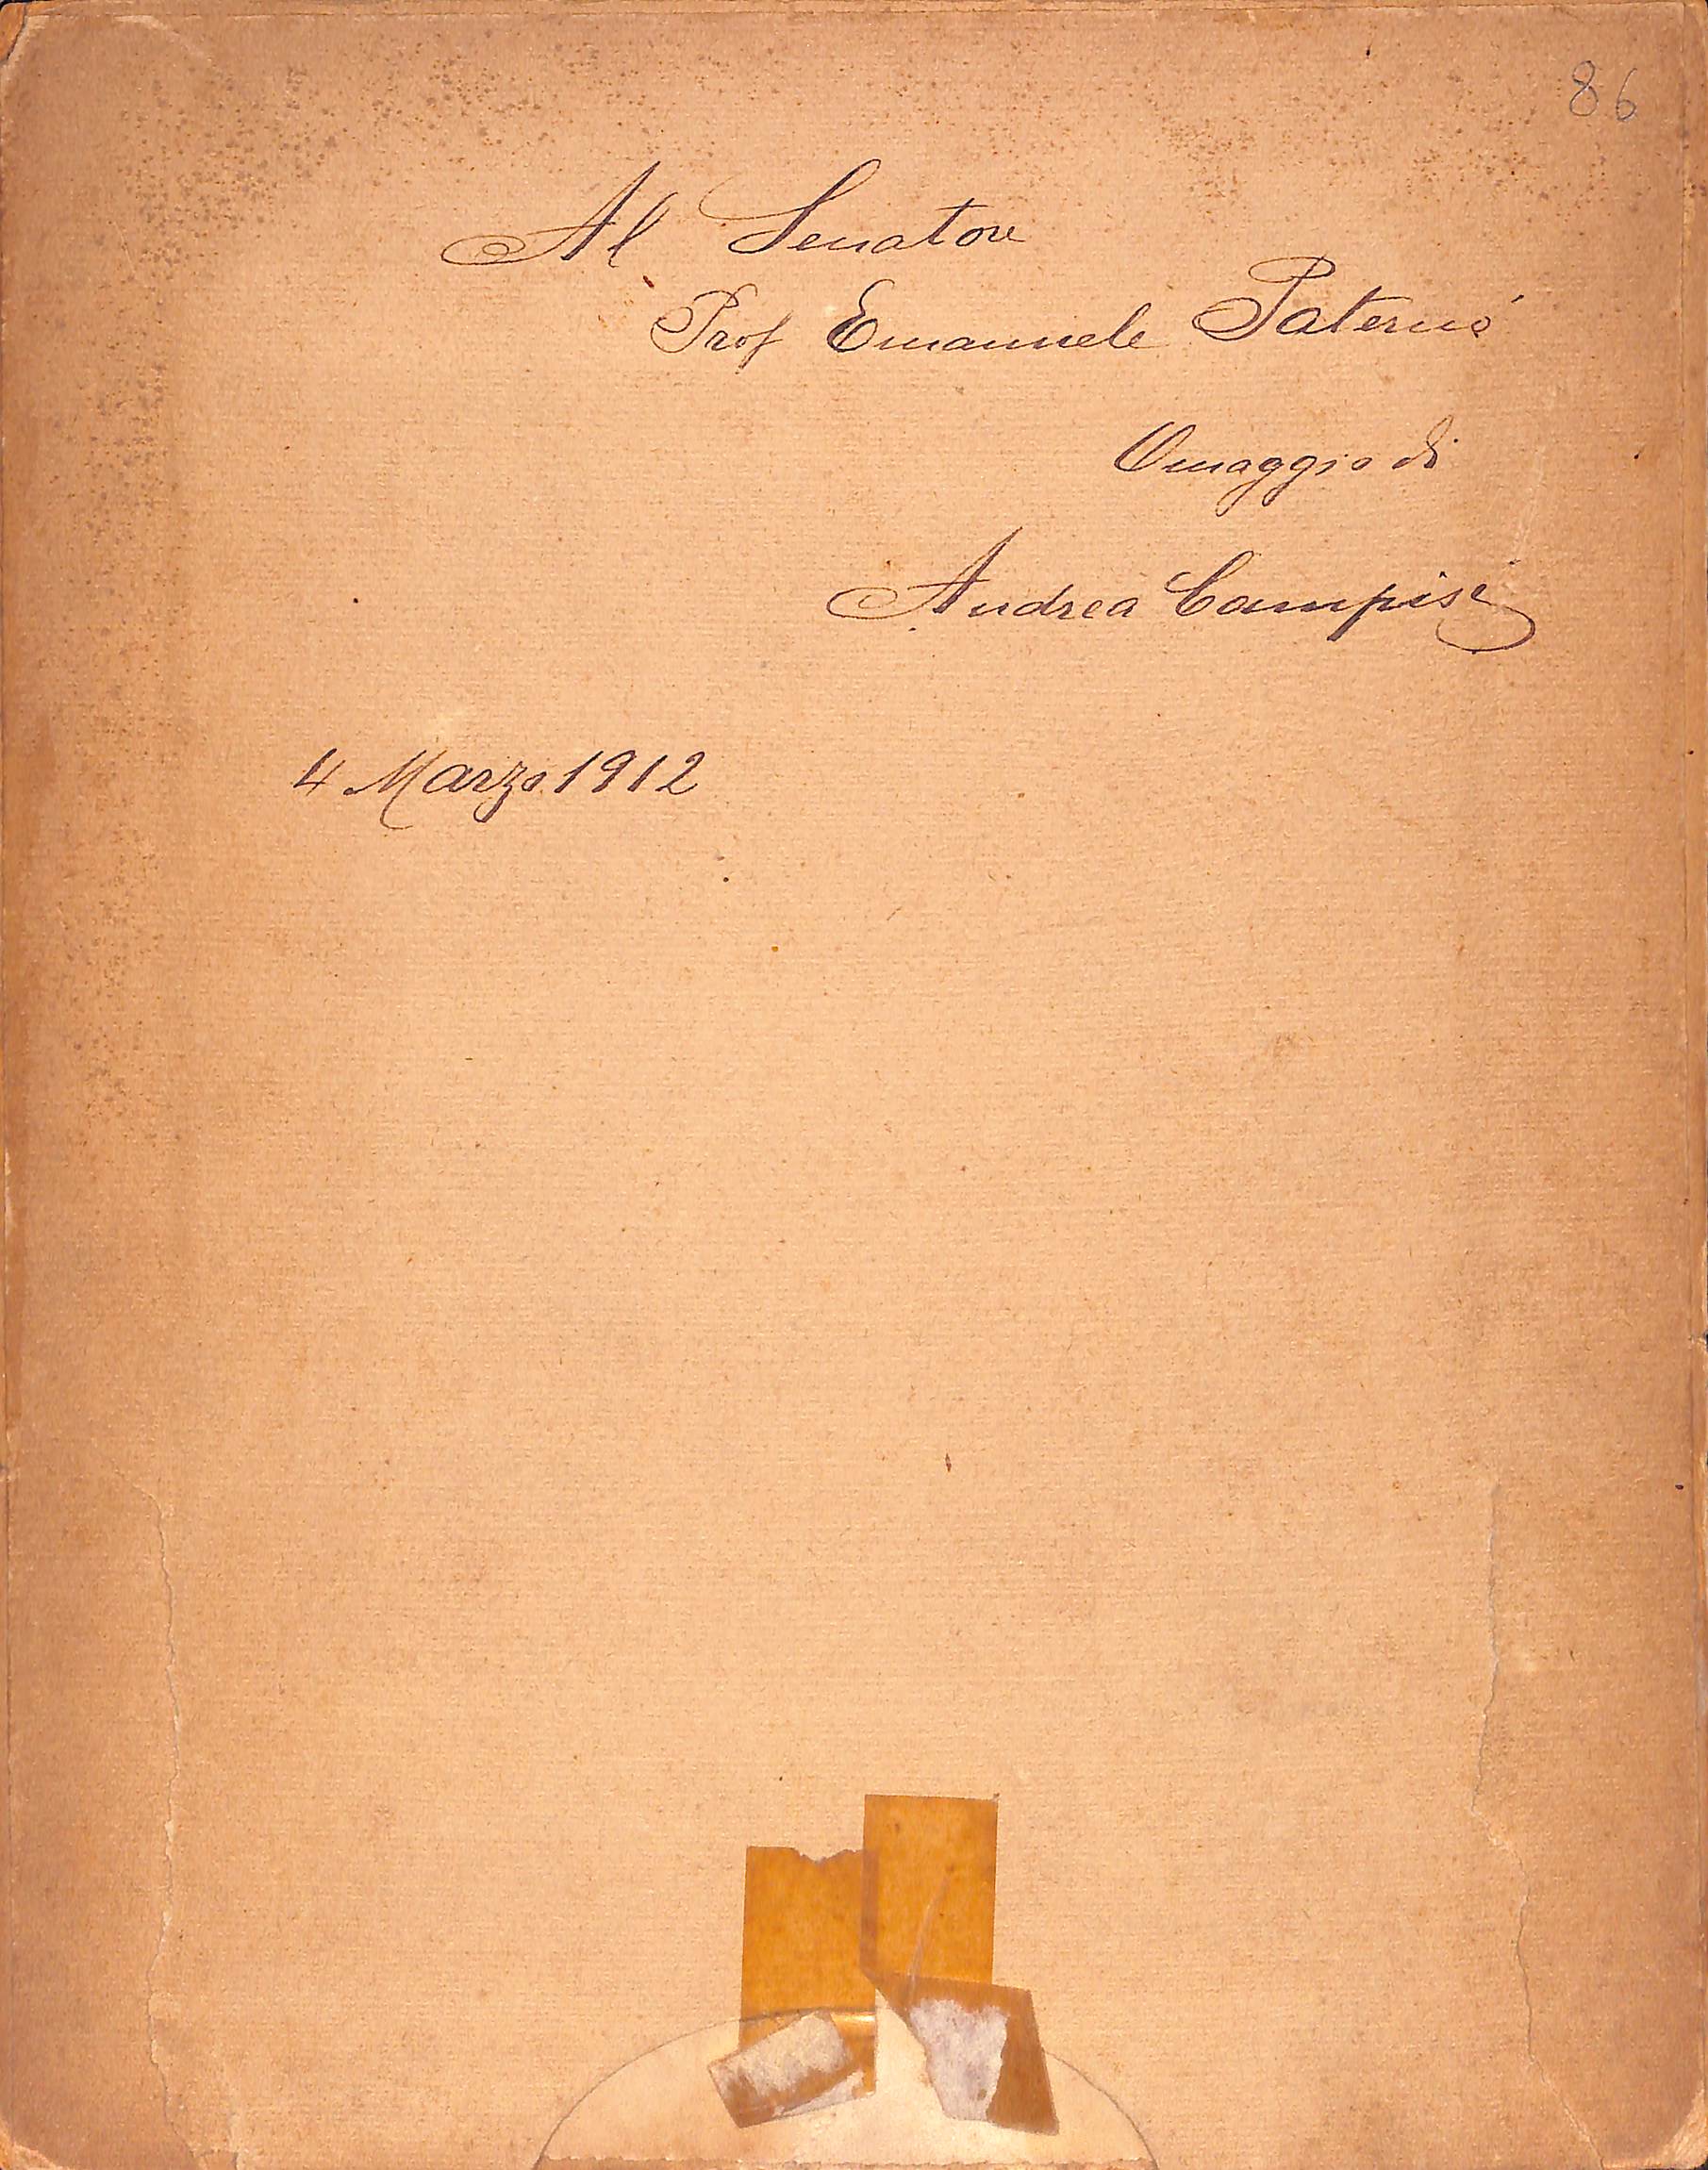 86
Al Senatore
Prof Emanuele Paternò
Omaggio di
Andrea Campisi
4 Marzo 1912